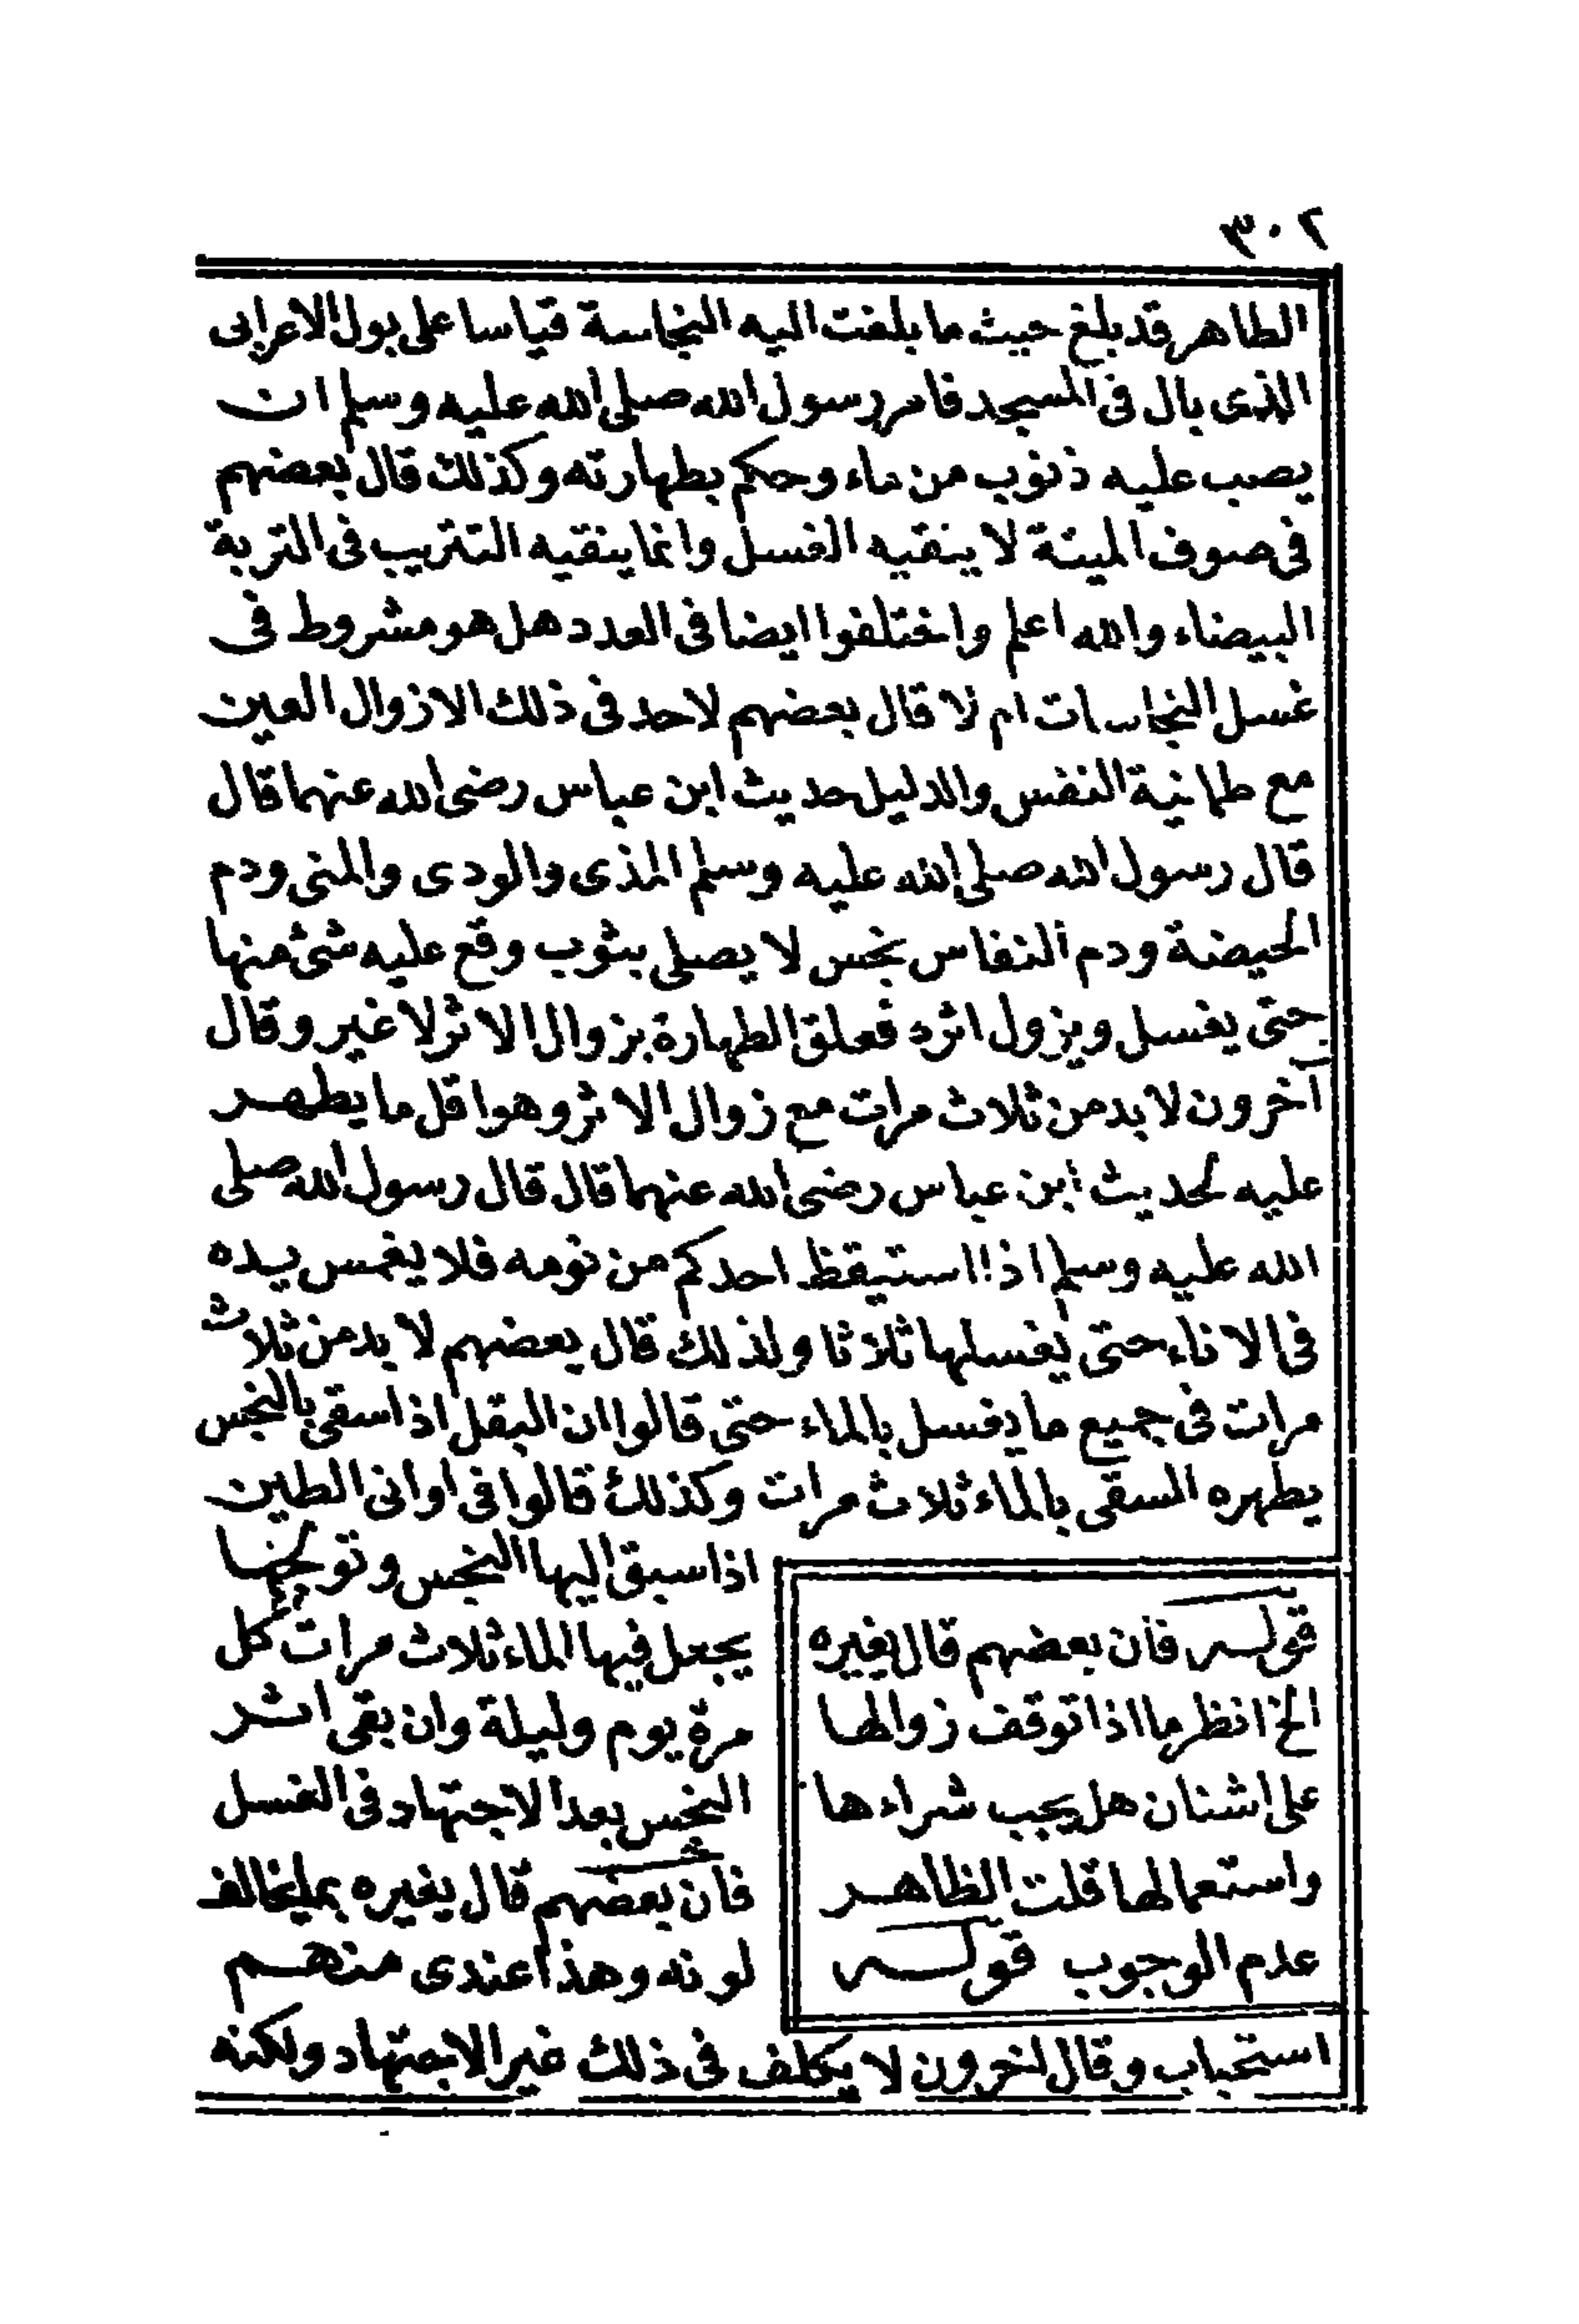 ٣٠٢
الطاهر قد بلغ حيث ما بلغت اليه النجاسة قياسا على بول الاعرابى
الذى بال فى المسجد فامر رسول الله صلى الله عليه وسلم ان
يصب عليه ذنوب من ماء وحكم بطهارته وكذلك قال بعضهم
فى صوف الميتة لا ينقيه الغسل وانما ينقيه التتريب فى التربة
البيضاء والله اعلم واختلفوا ايضا فى العدد هل هو مشروط فى
غسل النجاسات ام لا قال بعضهم لا حد فى ذلك الا زوال العين
مع طمانية النفس والدليل حديث ابن عباس رضى الله عنهما قال
قال رسول الله صلى الله عليه وسلم المذى والودى والمنى ودم
الحيضة ودم النفاس نجس لا يصلى بثوب وقع عليه شئ منها
حتى يغسل ويزول اثره فعلق الطهارة بزوال الاثر لا غير وقال
آخرون لا بد من ثلاث مرات مع زوال الاثر وهو اقل ما يطهر
عليه لحديث ابن عباس رضى الله عنهما قال قال رسول الله صلى
الله عليه وسلم اذا استيقظ احدكم من نومه فلا يغمس يده
فى الاناء حتى يغسلها ثلاثا ولذلك قال بعضهم لا بد من ثلاث
مرات فى جميع ما يغسل بالماء حتى قالوا ان البقل اذا سقى بالنجس
يطهره السقى بالماء ثلاث مرات وكذلك قالوا فى اوانى الطين
اذا سبق اليها النجس وتولجها
يجعل فيها الماء ثلاث مرات كل
مرة يوم وليلة وان بقى اثر
النجس بعد الاجتهاد فى الغسل
فان بعضهم قال يغيره بما يخالف
لونه وهذا عندى منهم
استحباب وقال اخرون لا يكلف فى ذلك غير الاجتهاد ولكنه
قوله فان بعضهم قال يغيره
الخ انظر ما اذا توقف زوالها
على اشنان هل يجب شراءها
واستعمالها قلت الظاهر
عدم الوجوب قوله